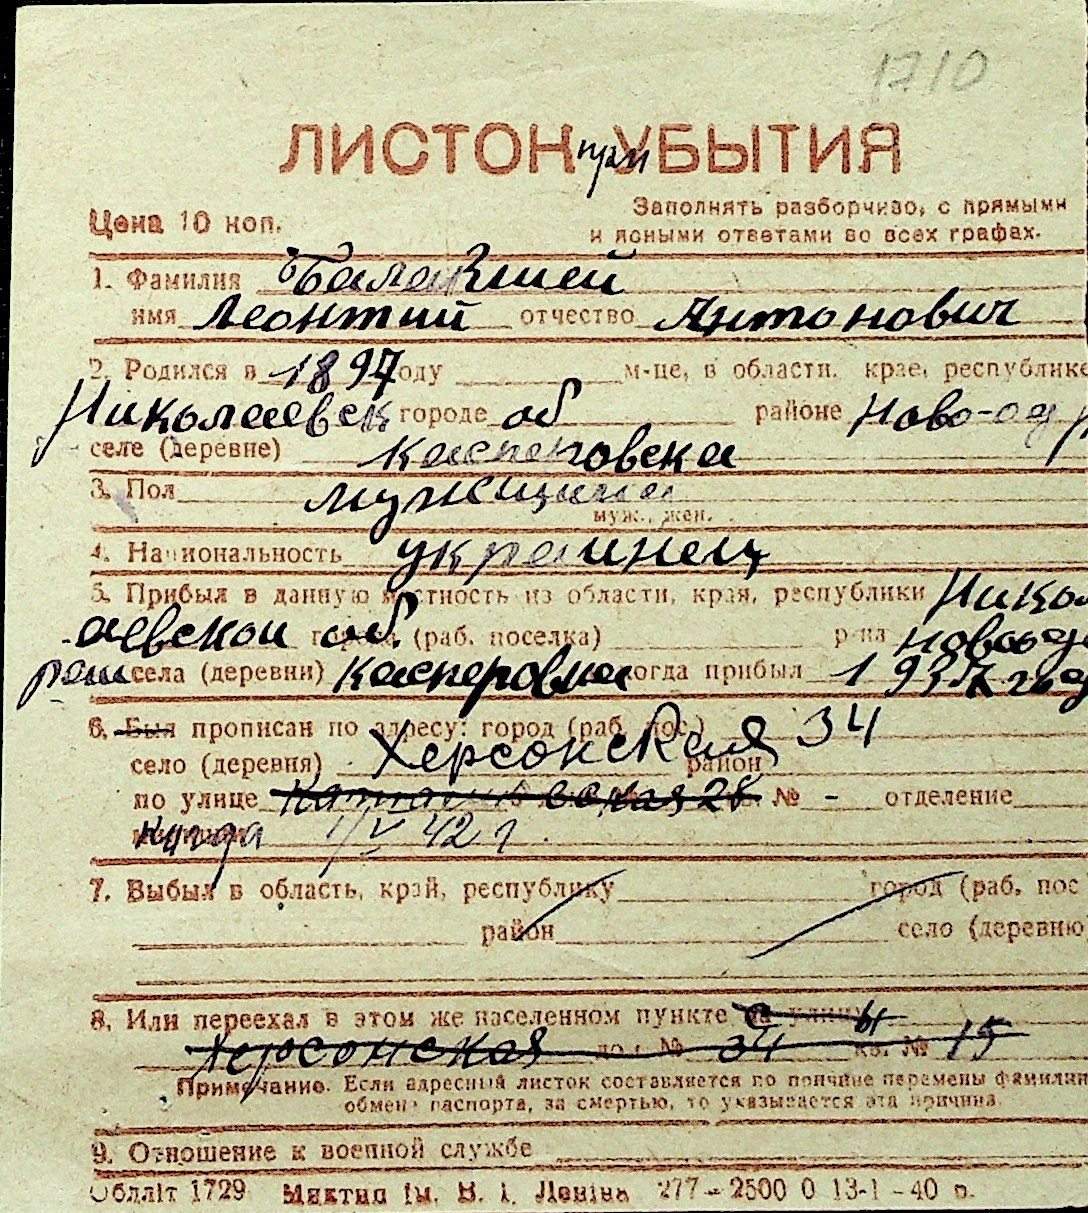 1710
ЛИСТОК при УБЫТИЯ
Цена 10 коп.
Заполнять разборчиво, с прямыми
и ясными ответами во всех графах.
1. Фамилия
имя Леонтий отчество Антонович
2. Родился в 1897 году м-це, в области, крае, республике
Николаевск городе об районе Ново-од
селе (деревне) Касперовска
3. Пол мужщина
муж., жен.
4. Национальность украинец
5. Прибыл в данную местность из области, края, республики Никол
аевской города об (раб. поселка) р-на Новооде
села (деревни) Касперовка когда прибыл 1937 год
6. Был прописан по адресу: город (раб. пос.)
село (деревня) Херсонская 34 район
по улице 28 № - отделение
Когда 1/V 42 г.
7. Выбыл в область, край, республику город (раб. пос
район село (деревню
8. Или переехал в этом же населенном пункте на улицу
Херсонская дом № 34 кв. № 15
Примечание. Если адресный листок составляется по причине перемены фамилии
обмена паспорта, за смертью, то указывается эта причина.
9. Отношение к военной службе
Облліт 1729 Миктип Ім. В. І. Леніна 277-2500 0 13-1-40 р.